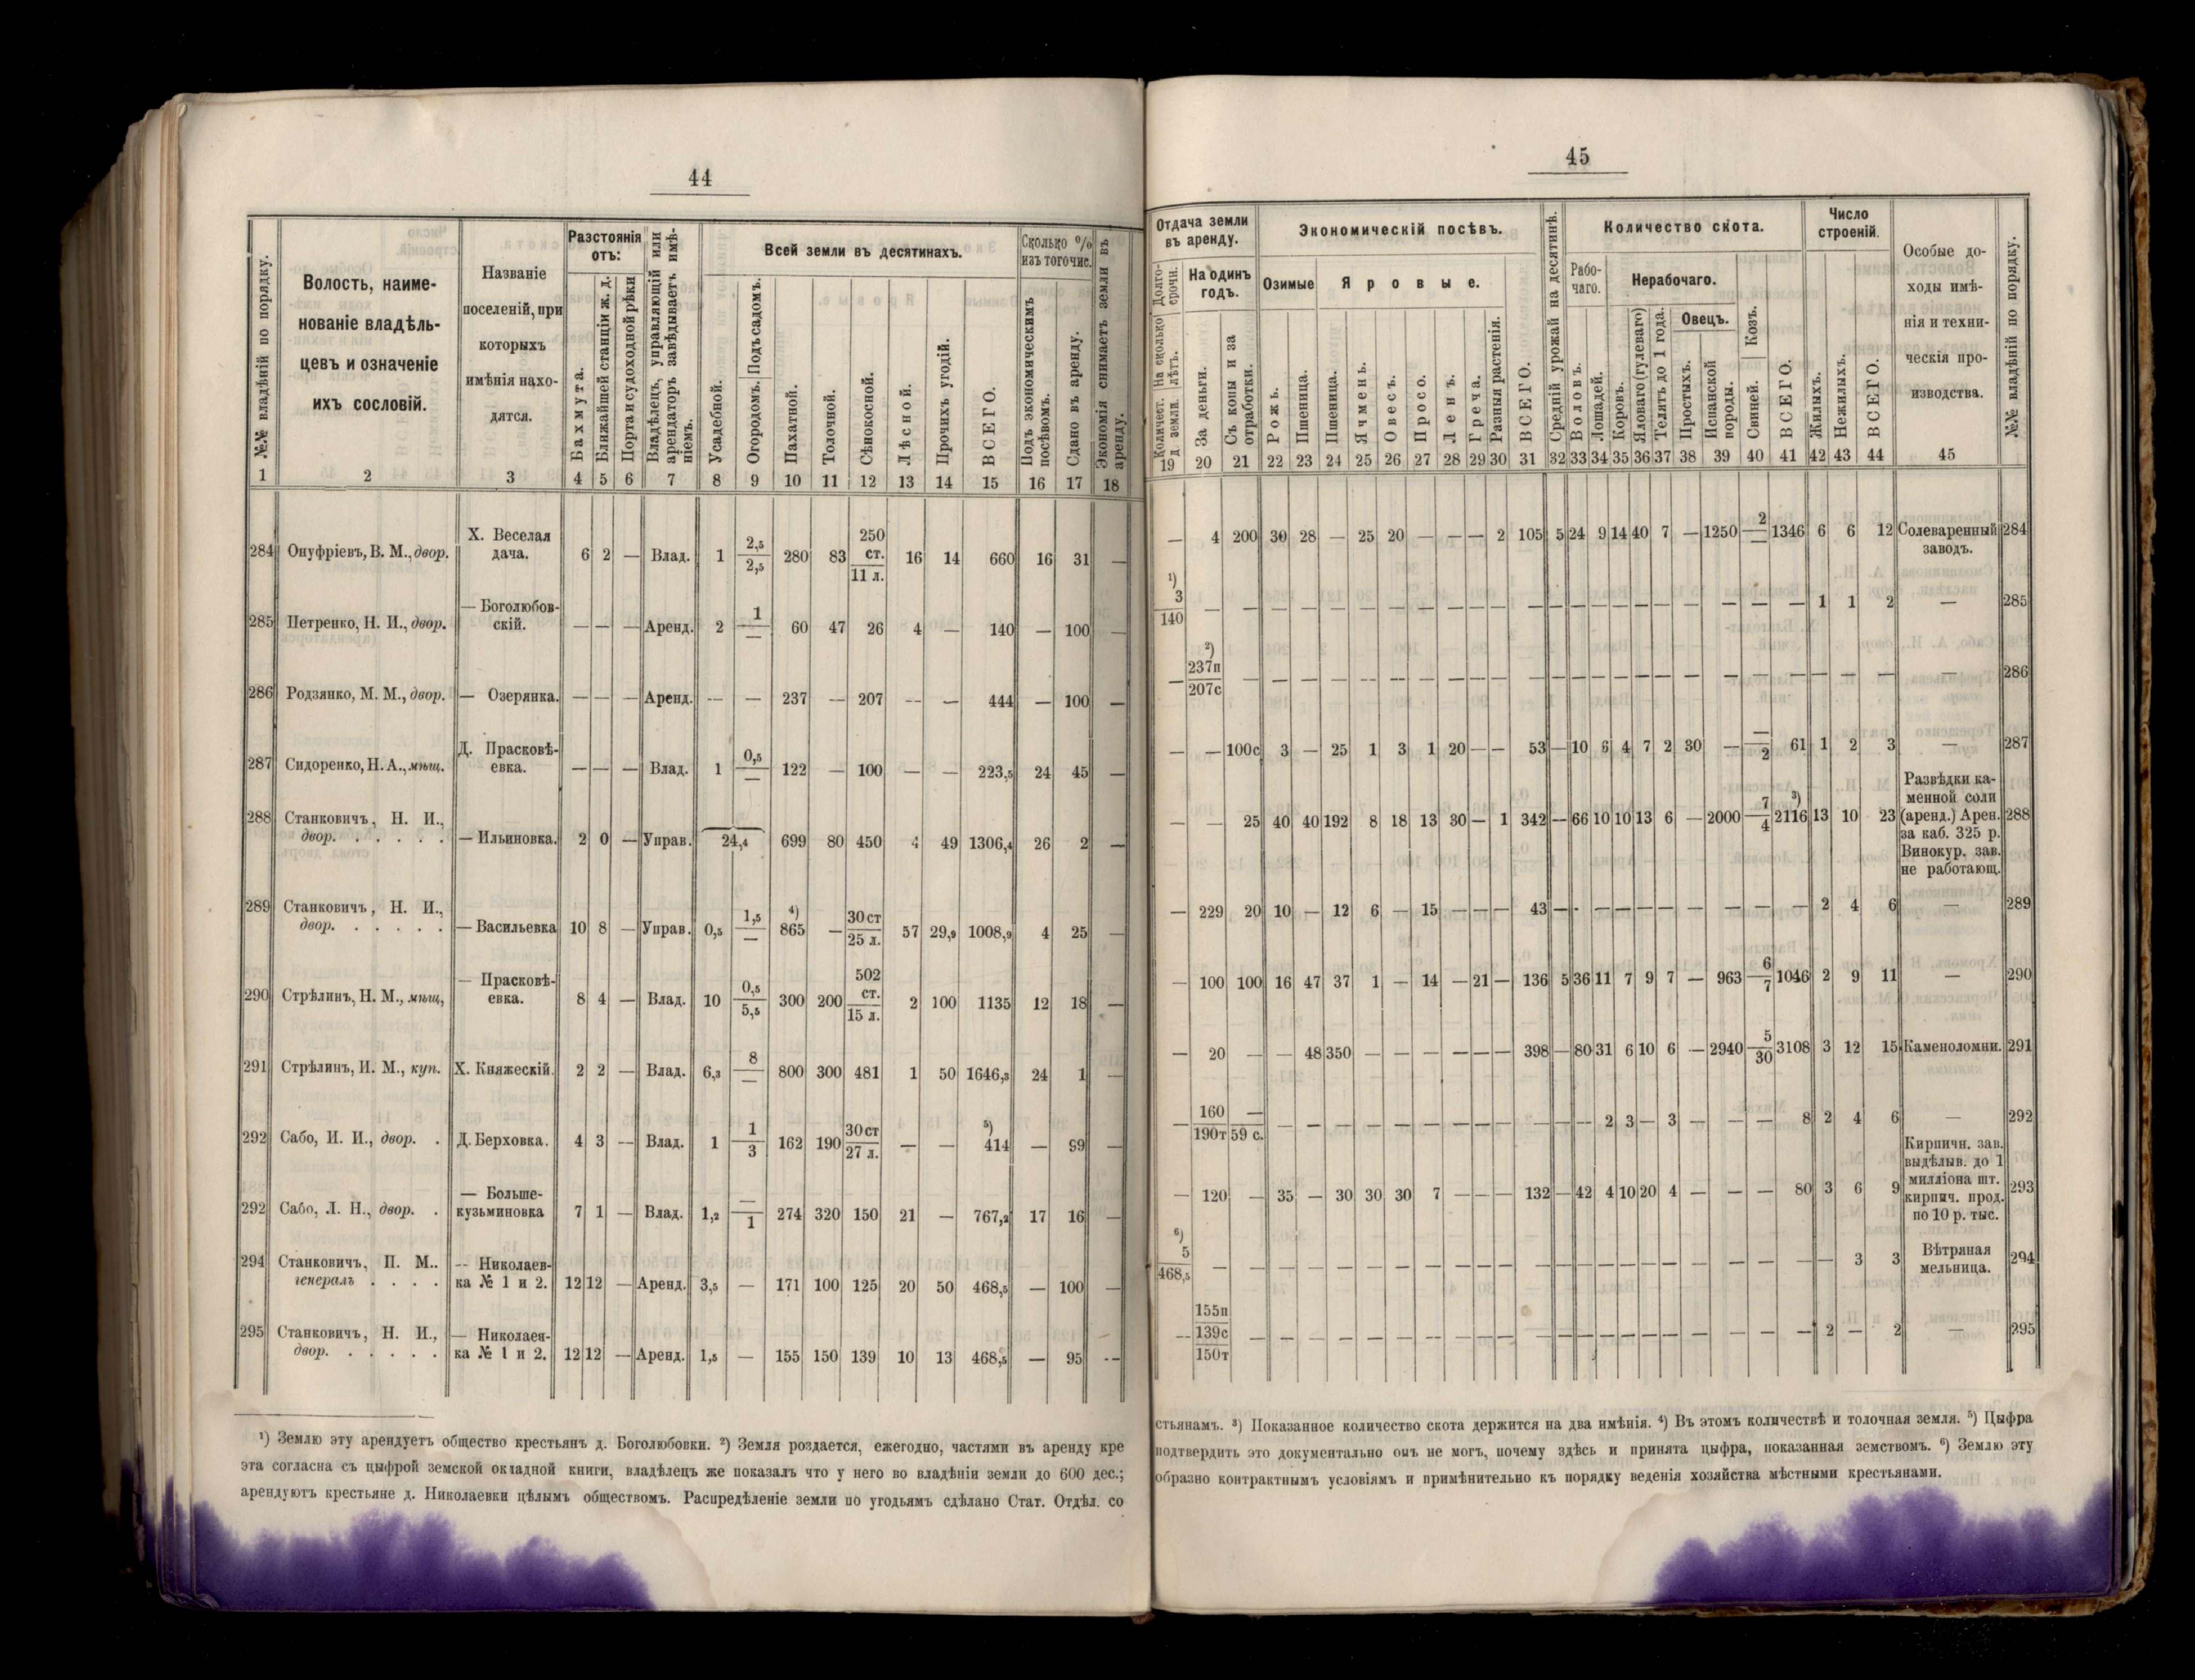 44
№№ владѣній по порядку.
Волость, наиме-
нованіе владѣль-
цевъ и означеніе
ихъ сословій.
Названіе
поселеній, при
которыхъ
имѣнія нахо-
дятся.
Разстоянія
отъ:
Бахмута.
Ближайшей станціи ж. д.
Порта и судоходной рѣки
Владѣлецъ, управляющій или
арендаторъ завѣдываетъ имѣ-
ніемъ.
Всей земли въ десятинахъ.
Усадебной.
Огородомъ. Подъ садомъ.
Пахатной.
Толочной.
Сѣнокосной.
Лѣсной.
Прочихъ угодій.
ВСЕГО.
Сколько %
изъ того чис.
Подъ экономическимъ
посѣвомъ.
Сдано въ аренду.
Экономія снимаетъ земли въ
аренду.
1 2 3 4 5 6 7 8 9 10 11 12 13 14 15 16 17 18
284 Онуфріевъ, В. М., двор. Х. Веселая дача. 6 2 — Влад. 1 2,5/2,5 280 83 250 ст./11 л. 16 14 660 16 31 —
285 Петренко, Н. И., двор. — Боголюбов-скій. — — — Аренд. 2 1/— 60 47 26 4 — 140 — 100 —
286 Родзянко, М. М., двор. — Озерянка. — — — Аренд. — — 237 — 207 — — 444 — 100 —
287 Сидоренко, Н. А., мѣщ. Д. Прасковѣ-евка. — — — Влад. 1 0,5/— 122 — 100 — — 223,5 24 45 —
288 Станковичъ, Н. И., двор. . . . . . — Ильиновка. 2 0 — Управ. 24,4 699 80 450 4 49 1306,4 26 2 —
289 Станковичъ, Н. И., двор. . . . . . — Васильевка 10 8 — Управ. 0,5 1,5/— ⁴) 865 — 30 ст/25 л. 57 29,9 1008,9 4 25 —
290 Стрѣлинъ, Н. М., мѣщ, — Прасковѣ-евка. 8 4 — Влад. 10 0,5/5,5 300 200 502 ст./15 л. 2 100 1135 12 18 —
291 Стрѣлинъ, И. М., куп. Х. Княжескій. 2 2 — Влад. 6,3 8/— 800 300 481 1 50 1646,3 24 1 —
292 Сабо, И. И., двор. . Д. Берховка. 4 3 — Влад. 1 1/3 162 190 30 ст/27 л. — — ⁵) 414 — 99 —
292 Сабо, Л. Н., двор. . — Больше-кузьминовка 7 1 — Влад. 1,2 —/1 274 320 150 21 — 767,2 17 16 —
294 Станковичъ, П. М.. генералъ . . . . — Николаев-ка № 1 и 2. 12 12 — Аренд. 3,5 — 171 100 125 20 50 468,5 — 100 —
295 Станковичъ, Н. И., двор. . . . . . — Николаея-ка № 1 и 2. 12 12 — Аренд. 1,5 — 155 150 139 10 13 468,5 — 95 —
¹) Землю эту арендуетъ общество крестьянъ д. Боголюбовки. ²) Земля роздается, ежегодно, частями въ аренду кре
эта согласна съ цыфрой земской окладной книги, владѣлецъ же показалъ что у него во владѣніи земли до 600 дес.;
арендуютъ крестьяне д. Николаевки цѣлымъ обществомъ. Распредѣленіе земли по угодьямъ сдѣлано Стат. Отдѣл. со
45
Отдача земли
въ аренду.
Долго-
срочн.
Количест. На сколько
д. земли. лѣтъ.
На одинъ
годъ.
За деньги.
Съ копы и за
отработки.
Экономическій посѣвъ.
Озимые
Яровые.
Рожь.
Пшеница.
Пшеница.
Ячмень.
Овесъ.
Просо.
Ленъ.
Греча.
Разныя растенія.
ВСЕГО.
Средній урожай на десятинѣ.
Количество скота.
Рабо-
чаго.
Нерабочаго.
Воловъ.
Лошадей.
Коровъ.
Яловаго (гулеваго)
Телятъ до 1 года.
Овецъ.
Простыхъ.
Испанской
породы.
Свиней. Козъ.
ВСЕГО.
Число
строеній.
Жилыхъ.
Нежилыхъ.
ВСЕГО.
Особые до-
ходы имѣ-
нія и техни-
ческія про-
изводства.
№№ владѣній по порядку.
19 20 21 22 23 24 25 26 27 28 29 30 31 32 33 34 35 36 37 38 39 40 41 42 43 44 45
— 4 200 30 28 — 25 20 — — — 2 105 5 24 9 14 40 7 — 1250 2/— 1346 6 6 12 Солеваренный заводъ. 284
¹) 3/140 — — — — — — — — — — — — — — — — — — — — — — 1 1 2 — 285
— ²) 237п/207с — — — — — — — — — — — — — — — — — — — — — — — — — 286
— — 100с 3 — 25 1 3 1 20 — — 53 — 10 6 4 7 2 30 — —/2 61 1 2 3 — 287
— — 25 40 40 192 8 18 13 30 — 1 342 — 66 10 10 13 6 — 2000 7/4 ³) 2116 13 10 23 Развѣдки ка-менной соли (аренд.) Арен. за каб. 325 р. Винокур. зав. не работающ. 288
— 229 20 10 — 12 6 — 15 — — — 43 — — — — — — — — — — 2 4 6 — 289
— 100 100 16 47 37 1 — 14 — 21 — 136 5 36 11 7 9 7 — 963 6/7 1046 2 9 11 — 290
— 20 — — 48 350 — — — — — — 398 — 80 31 6 10 6 — 2940 5/30 3108 3 12 15 Каменоломни. 291
— 160/190т —/59 с. — — — — — — — — — — — — 2 3 — 3 — — — 8 2 4 6 — 292
— 120 — 35 — 30 30 30 7 — — — 132 — 42 4 10 20 4 — — — 80 3 6 9 Кирпичн. зав. выдѣлыв. до 1 милліона шт. кирпич. прод. по 10 р. тыс. 293
⁶) 5/468,5 — — — — — — — — — — — — — — — — — — — — — — — 3 3 Вѣтряная мельница. 294
— 155п/139с/150т — — — — — — — — — — — — — — — — — — — — — 2 — 2 — 295
стьянамъ. ³) Показанное количество скота держится на два имѣнія. ⁴) Въ этомъ количествѣ и толочная земля. ⁵) Цыфра
подтвердить это документально онъ не могъ, почему здѣсь и принята цыфра, показанная земствомъ. ⁶) Землю эту
образно контрактнымъ условіямъ и примѣнительно къ порядку веденія хозяйства мѣстными крестьянами.